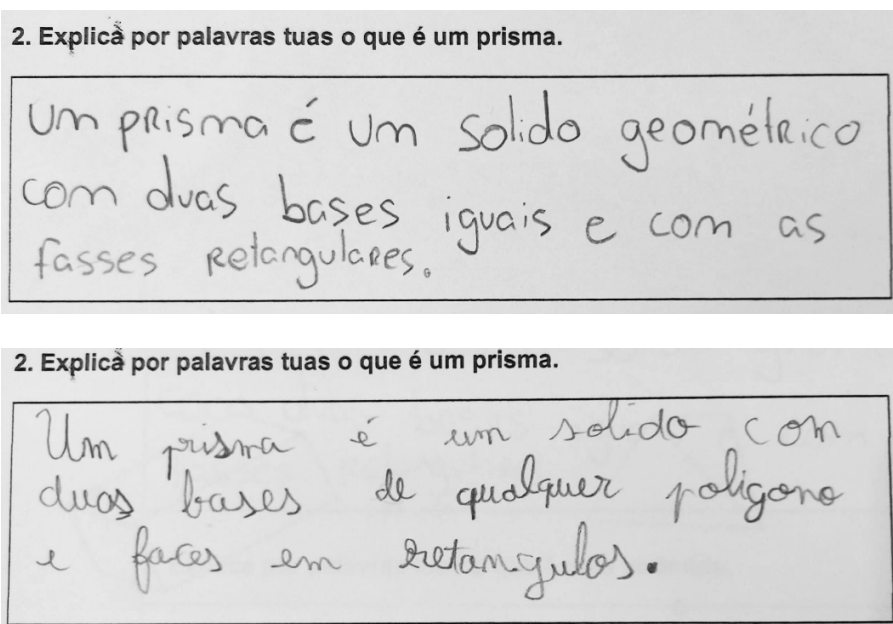 2. Explica por palavras tuas o que é um prisma.
Um prisma é um sólido geométrico
com duas bases iguais e com as
fasses retangulares.
2. Explica por palavras tuas o que é um prisma.
Um prisma é um solido com
duas bases de qualquer poligono
e faces em retangulos.